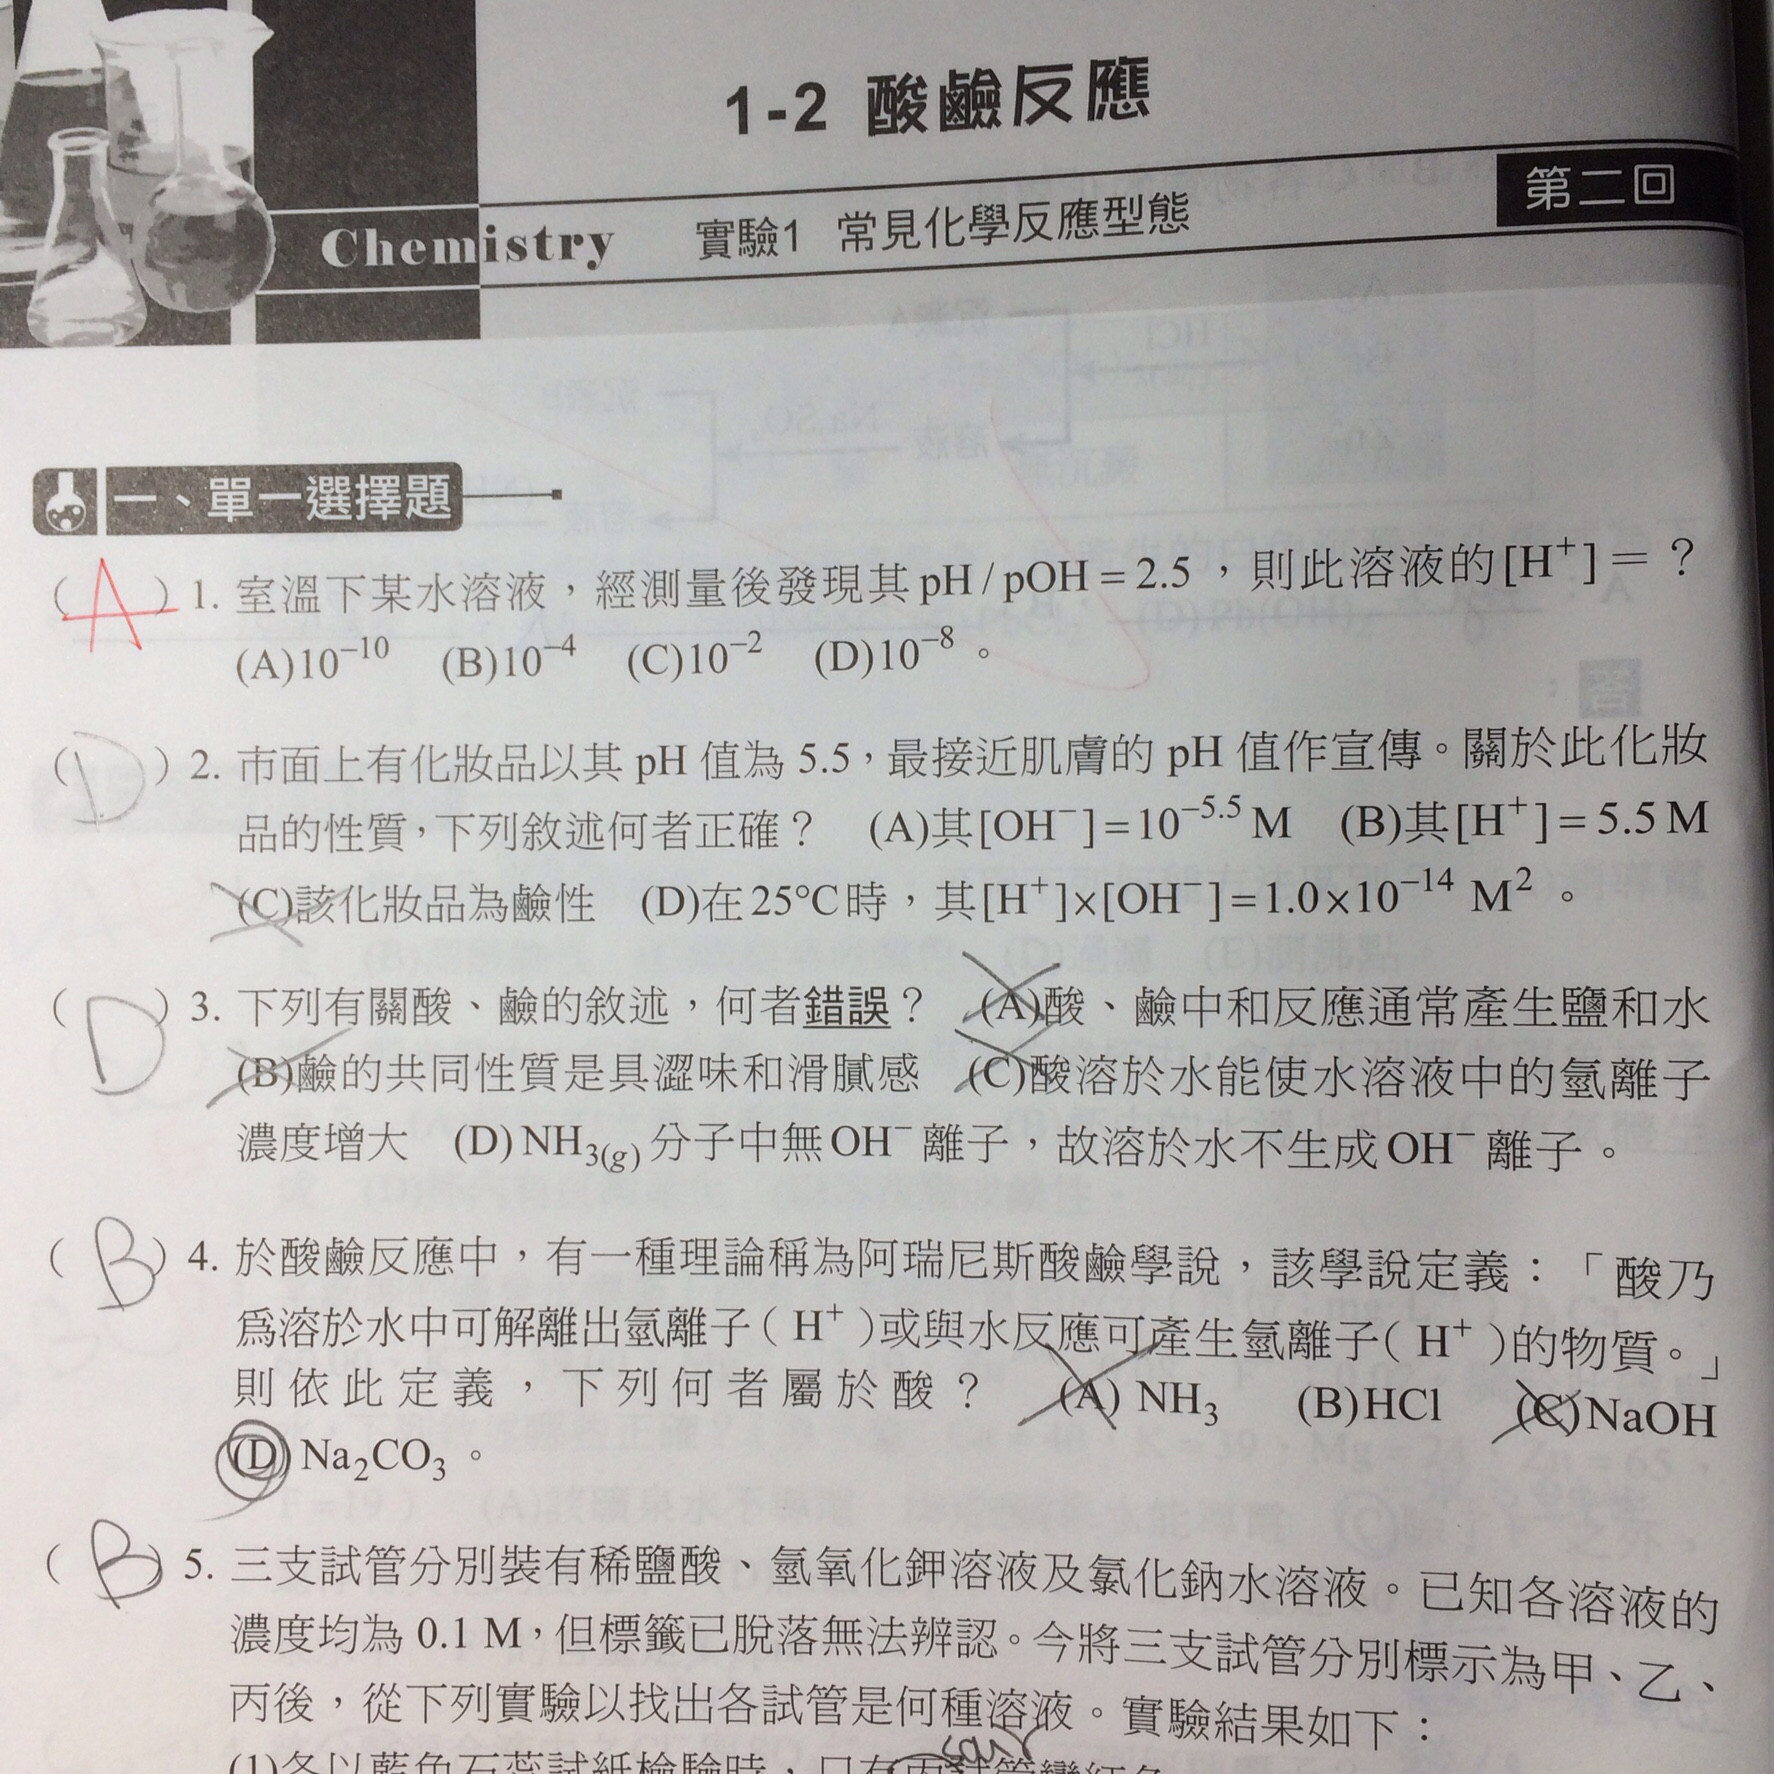 1-2 酸鹼反應
第二回
Chemistry 實驗1 常見化學反應型態
一、單一選擇題
( A ) 1. 室溫下某水溶液，經測量後發現其 pH / pOH = 2.5，則此溶液的[H⁺] = ？
(A)10⁻¹⁰ (B)10⁻⁴ (C)10⁻² (D)10⁻⁸。
( D ) 2. 市面上有化妝品以其 pH 值為 5.5，最接近肌膚的 pH 值作宣傳。關於此化妝
品的性質，下列敘述何者正確？ (A)其[OH⁻] = 10⁻⁵·⁵ M (B)其[H⁺] = 5.5 M
(C)該化妝品為鹼性 (D)在25°C時，其[H⁺]×[OH⁻] = 1.0×10⁻¹⁴ M²。
( D ) 3. 下列有關酸、鹼的敘述，何者錯誤？ (A)酸、鹼中和反應通常產生鹽和水
(B)鹼的共同性質是具澀味和滑膩感 (C)酸溶於水能使水溶液中的氫離子
濃度增大 (D) NH₃(g) 分子中無OH⁻離子，故溶於水不生成OH⁻離子。
( B ) 4. 於酸鹼反應中，有一種理論稱為阿瑞尼斯酸鹼學說，該學說定義：「酸乃
爲溶於水中可解離出氫離子( H⁺ )或與水反應可產生氫離子( H⁺ )的物質。」
則依此定義，下列何者屬於酸？ (A) NH₃ (B)HCl (C)NaOH
(D) Na₂CO₃。
( B ) 5. 三支試管分別裝有稀鹽酸、氫氧化鉀溶液及氯化鈉水溶液。已知各溶液的
濃度均為 0.1 M，但標籤已脫落無法辨認。今將三支試管分別標示為甲、乙、
丙後，從下列實驗以找出各試管是何種溶液。實驗結果如下：
(1)各以藍色石蕊試紙檢驗時，只有丙試管變紅色